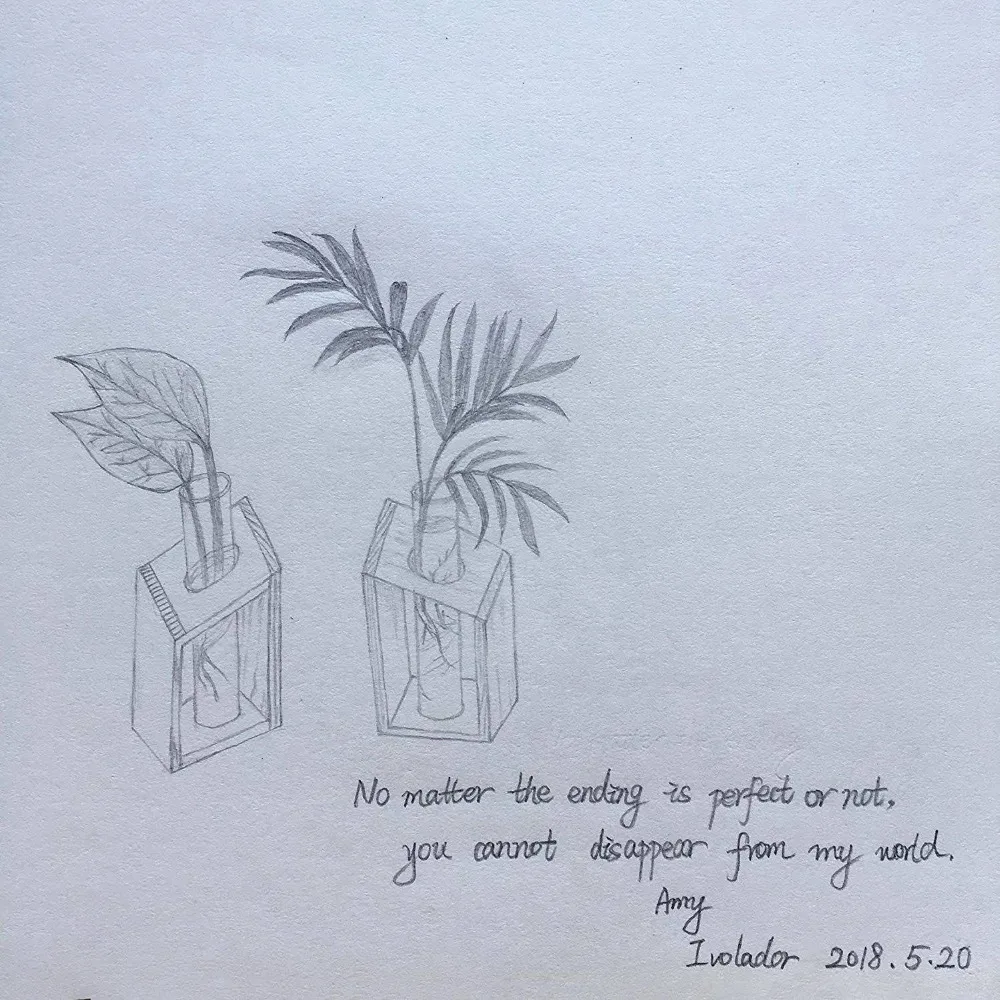 No matter the ending is perfect or not,
you cannot disappear from my world.
Amy
Ivolador 2018.5.20